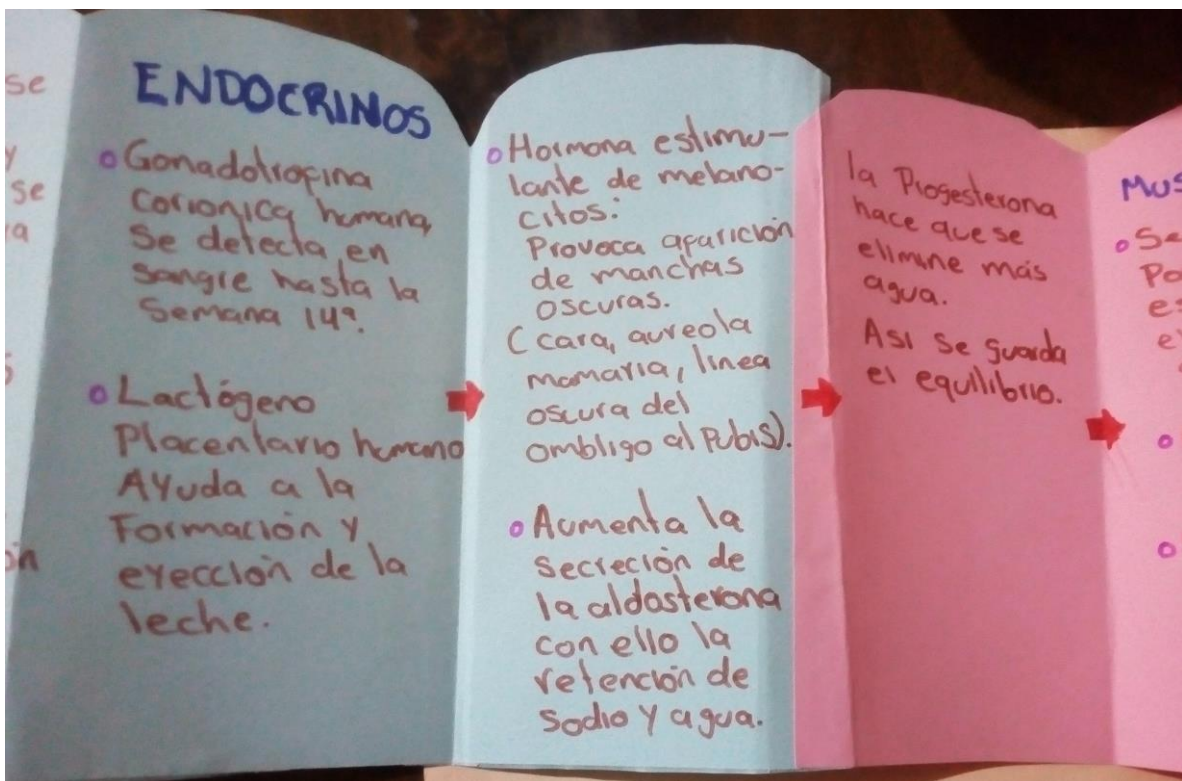 se
y
se
a
ón
ENDOCRINOS
Gonadotrofina
Corionica humana,
Se detecta en
sangre hasta la
Semana 14ª.
Lactógeno
Placentario humano
AYuda a la
Formación y
eyección de la
leche.
Hormona estimu-
lante de melano-
citos:
Provoca aparición
de manchas
oscuras.
(cara, aureola
mamaria, linea
oscura del
ombligo al Pubis).
Aumenta la
secreción de
la aldosterona
con ello la
retención de
Sodio y agua.
la Progesterona
hace que se
elimine más
agua.
Asi se guarda
el equilibrio.
MUS
Se
Po
es
e